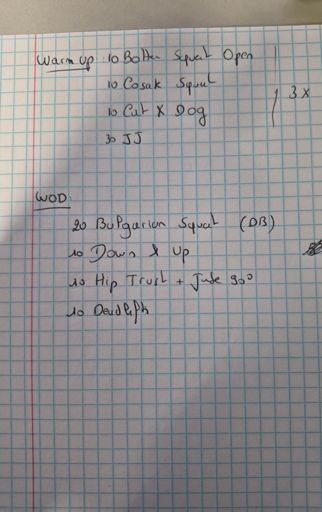 Warm up : 10 Botton Squat Open
10 Cosak Squat
10 Cat X Dog
3 x
30 JJ
WOD:
20 Bulgarian Squat (DB)
10 Down & Up
10 Hip Trust + 90°
10 Deadlift